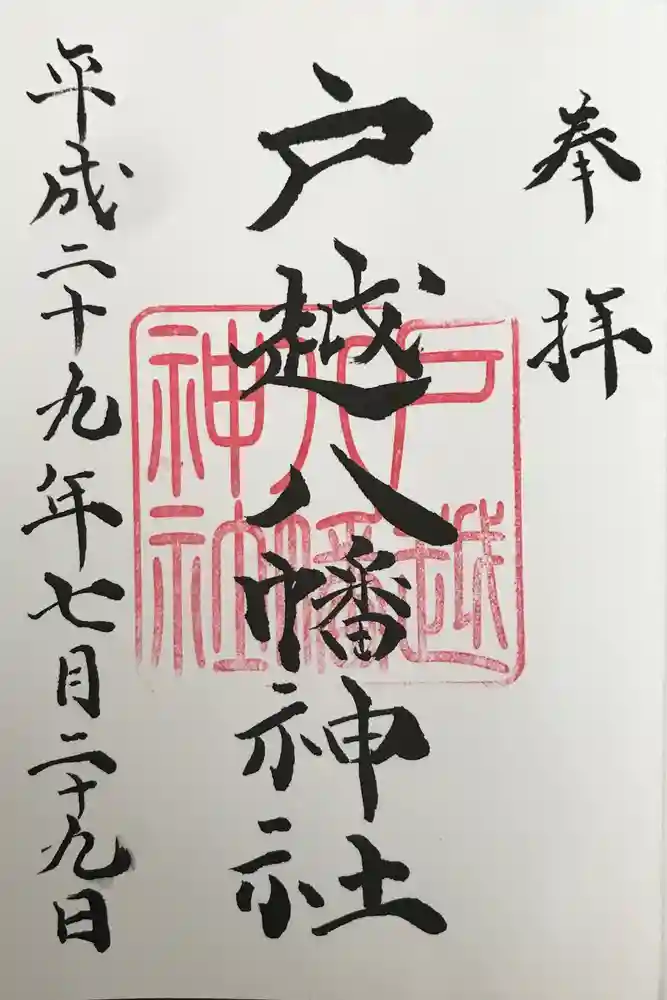 奉拝
戸越八幡神社
戸越
八幡
神社
平成二十九年七月二十九日